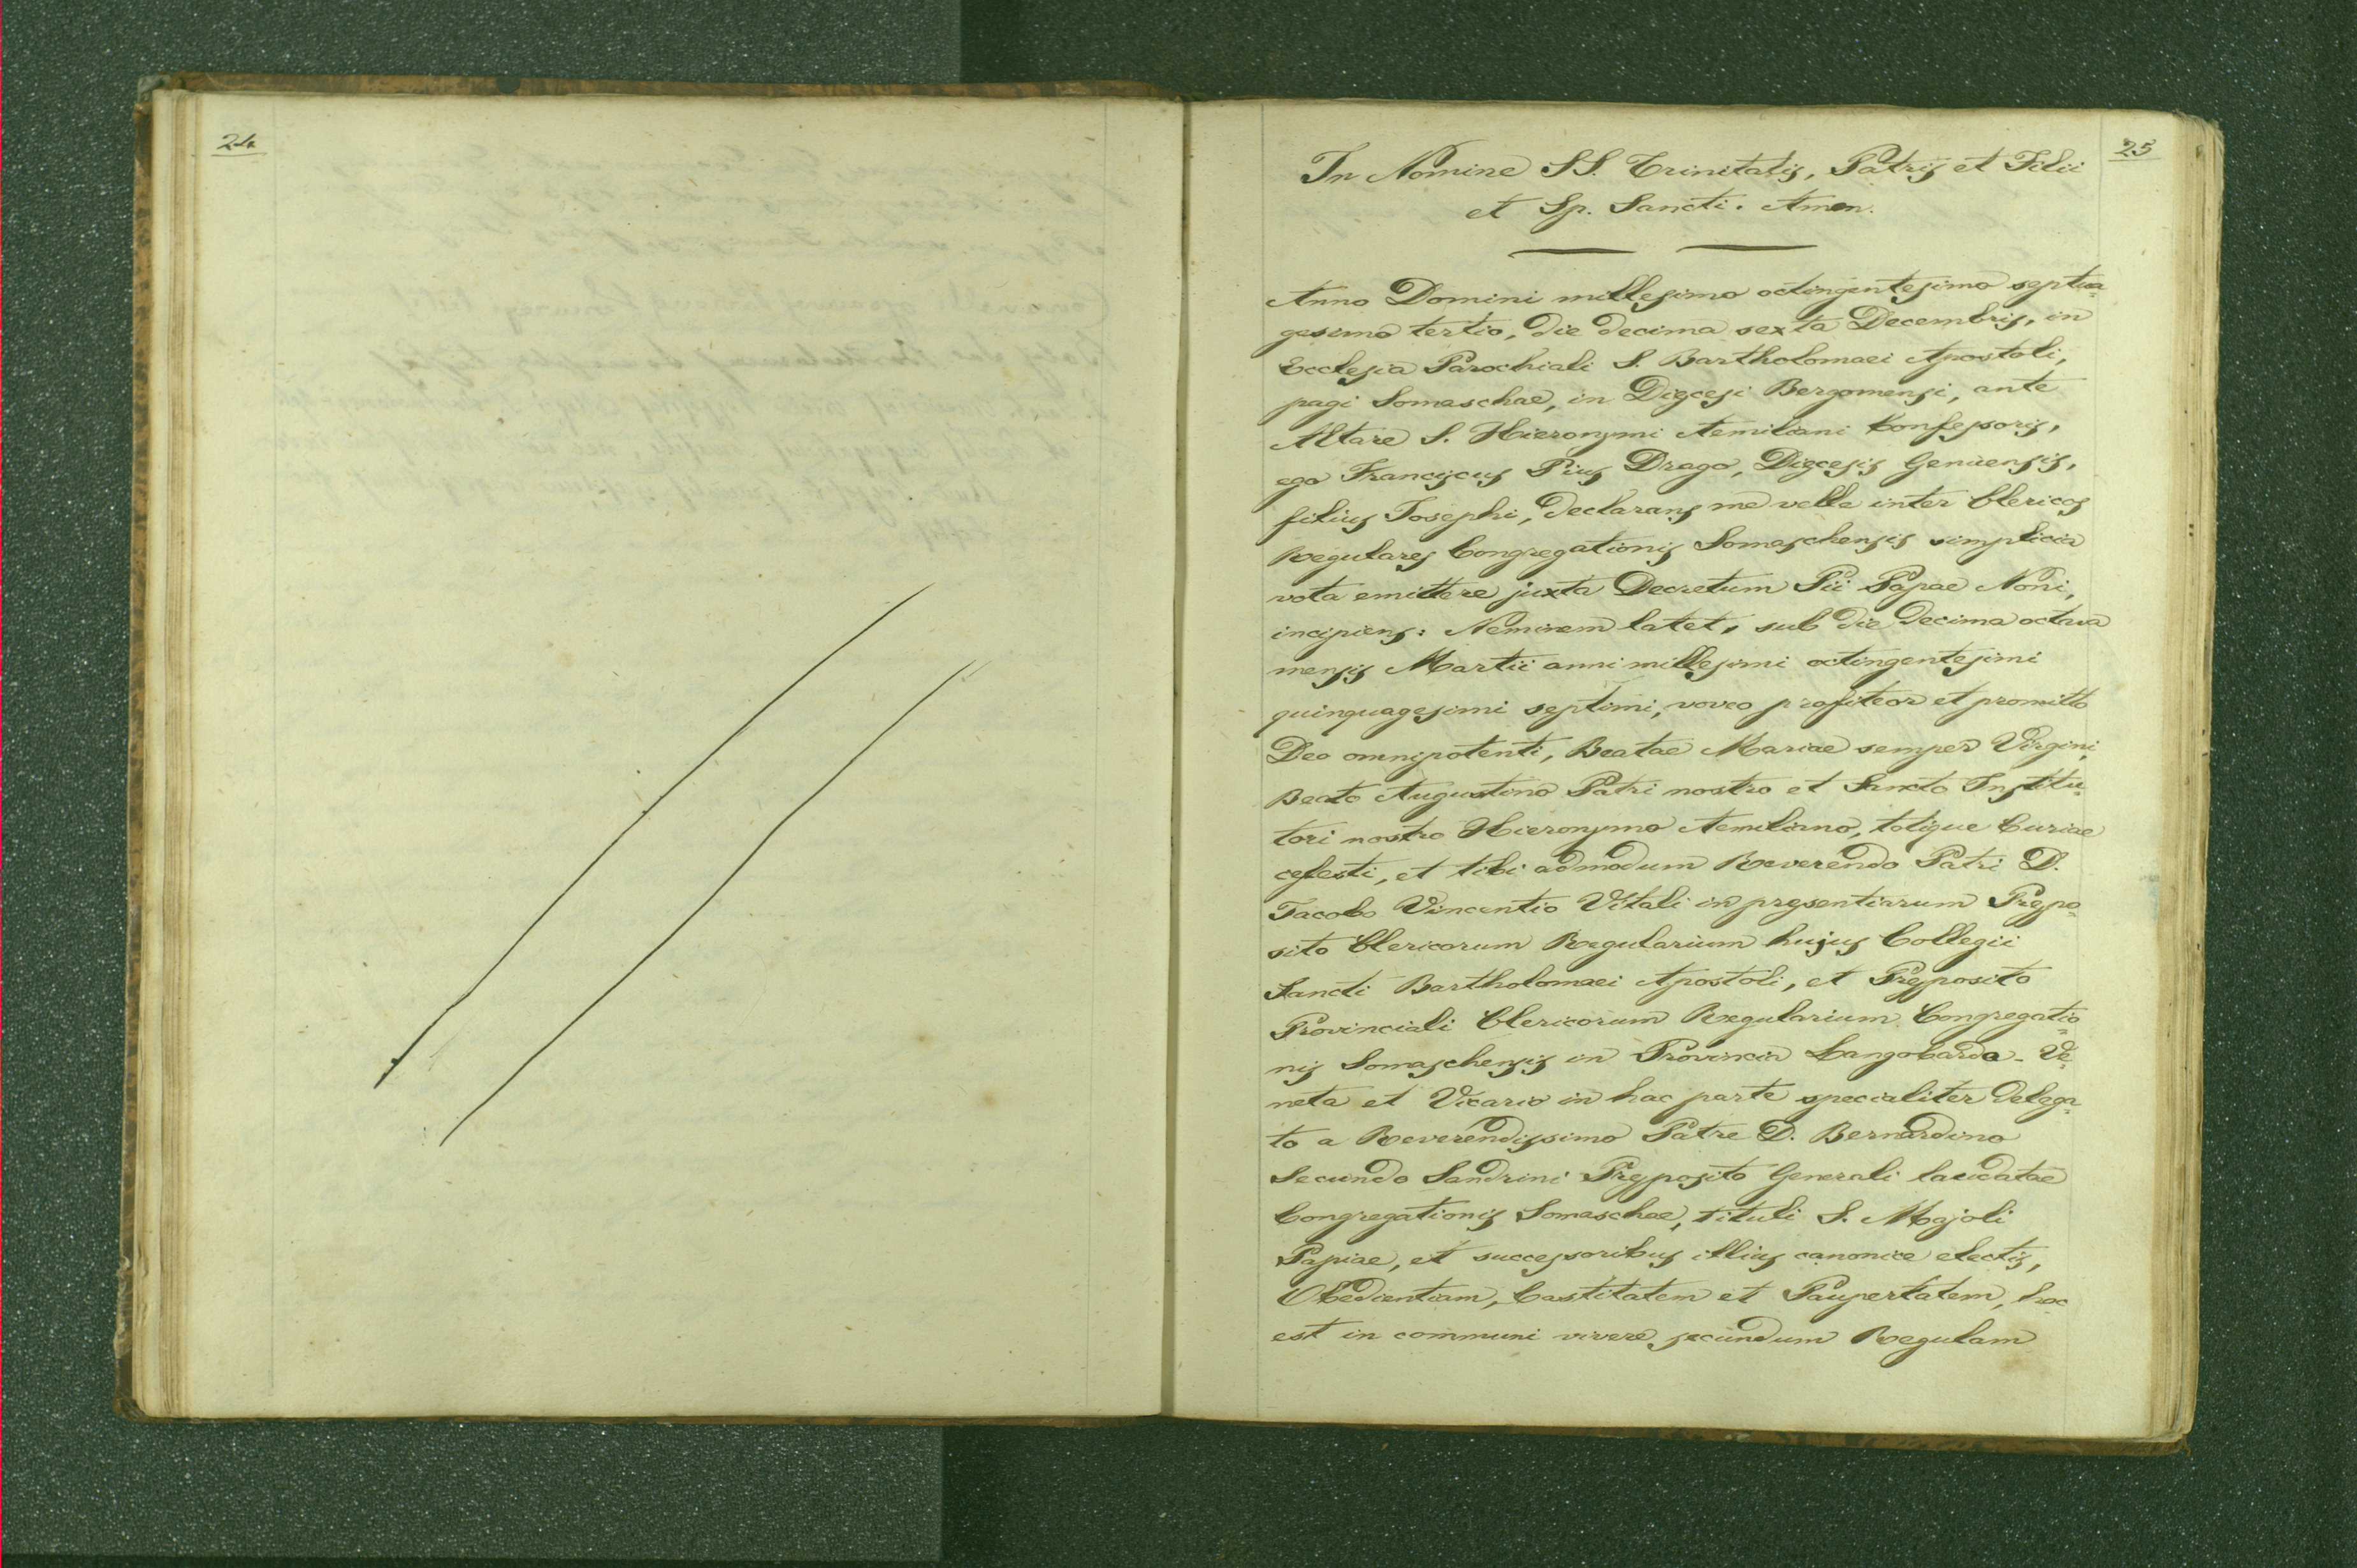 24
25
In Nomine SS. Trinitatis, Patris et Filii
et Sp. Sancti. Amen.
Anno Domini millesimo octingentesimo septua=
gesimo tertio, die decima sexta Decembris, in
Ecclesia Parochiali S. Bartholomaei Apostoli,
pagi Somaschae, in Dięcesi Bergomensi, ante
Altare S. Hieronymi Aemiliani Confessoris,
ego Franciscus Pius Drago, Dięcesis Genuensis,
filius Josephi, declarans me velle inter Clericos
Regulares Congregationis Somaschensis simplicia
vota emittere juxta Decretum Pii Papae Noni,
incipiens: Neminem latet, sub die decima octava
mensis Martii anni millesimi octingentesimi
quinquagesimi septimi, voveo profiteor et promitto
Deo omnipotenti, Beatae Mariae semper Virgini,
Beato Augustino Patri nostro et Sancto Institu=
tori nostro Hieronymo Aemiliano, totique Curiae
cęlesti, et tibi admodum Reverendo Patri D.
Jacobo Vincentio Vitali in pręsentiarum Prępo=
sito Clericorum Regularium hujus Collegii
Sancti Bartholomaei Apostoli, et Pręposito
Provinciali Clericorum Regularium Congregatio=
nis Somaschensis in Provincia Langobarda-Ve=
neta et Vicario in hac parte specialiter delega=
to a Reverendissimo Patre D. Bernardino
Secundo Sandrini Pręposito Generali laudatae
Congregationis Somaschae, tituli S. Majoli
Papiae, et successoribus illius canonice electis,
Obedientiam, Castitatem et Paupertatem, hoc
est in communi vivere secundum Regulam